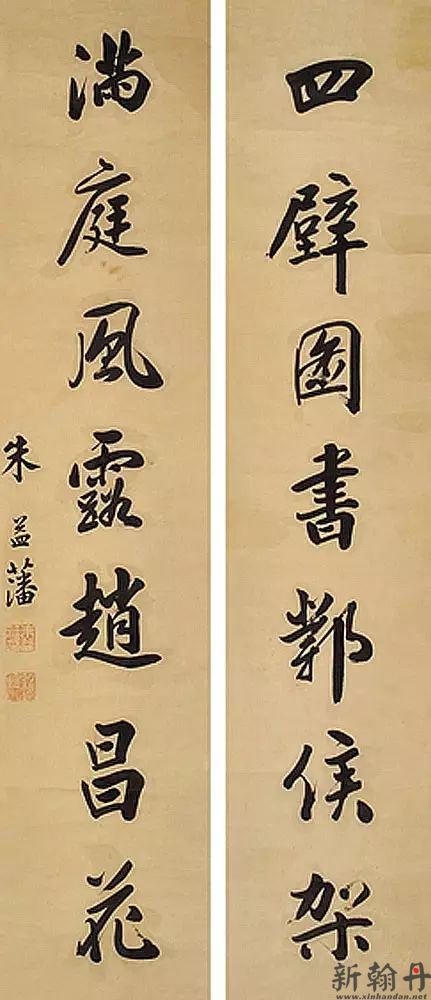 四壁圖書鄴侯架
滿庭風露趙昌花
朱益藩
新翰丹
www.xinhandan.net